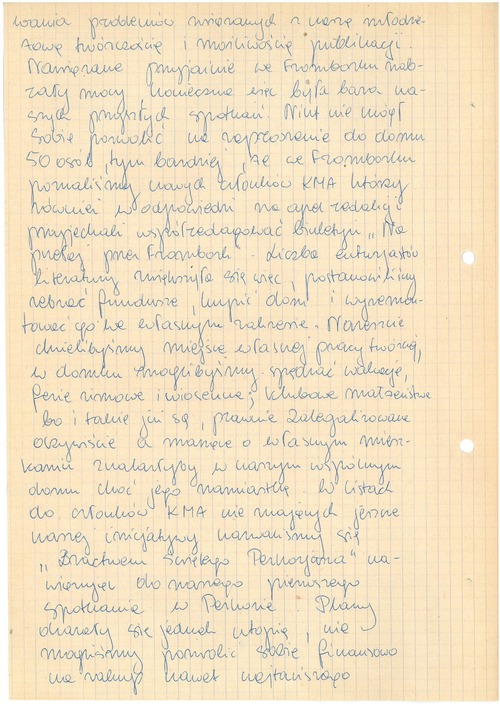 wania problemów związanych z naszą młodzie-
żową twórczością i możliwością publikacji.
Nawiązane przyjaźnie we Fromborku nab-
rały mocy konieczna więc była baza na-
szych przyszłych spotkań. Nikt nie mógł
sobie pozwolić na zaproszenie do domu
50 osób, tym bardziej, że we Fromborku
poznaliśmy nowych członków KMA którzy
również w odpowiedzi na apel redakcji
przyjechali współredagować biuletyn „Na
przełaj przez Frombork". Liczba entuzjastów
literatury zwiększyła się więc, postanowiliśmy
zebrać fundusze, kupić dom i wyremon-
tować go we własnym zakresie. Nareszcie
mielibyśmy miejsce własnej pracy twórczej,
w domku moglibyśmy spędzać wakacje,
ferie zimowe i wiosenne, klubowe małżeństwa
bo i takie już są, prawnie zalegalizowane
oczywiście a marzące o własnym miesz-
kaniu znalazłyby w naszym wspólnym
domu choć jego namiastkę. W listach
do członków KMA nie znających jeszcze
naszej inicjatywy nazwaliśmy się
„Bractwem Świętego" na-
wiązując do naszego pierwszego
spotkania w. Plany
okazały się jednak utopią, nie
mogliśmy pozwolić sobie finansowo
na zakup nawet najtańszego